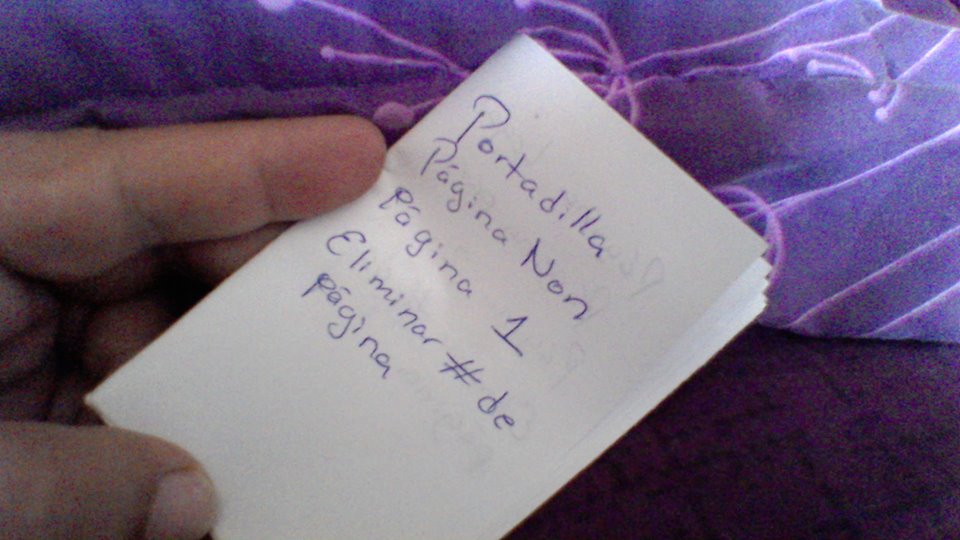 Portadilla
Página Non
página 1
Eliminar # de
página